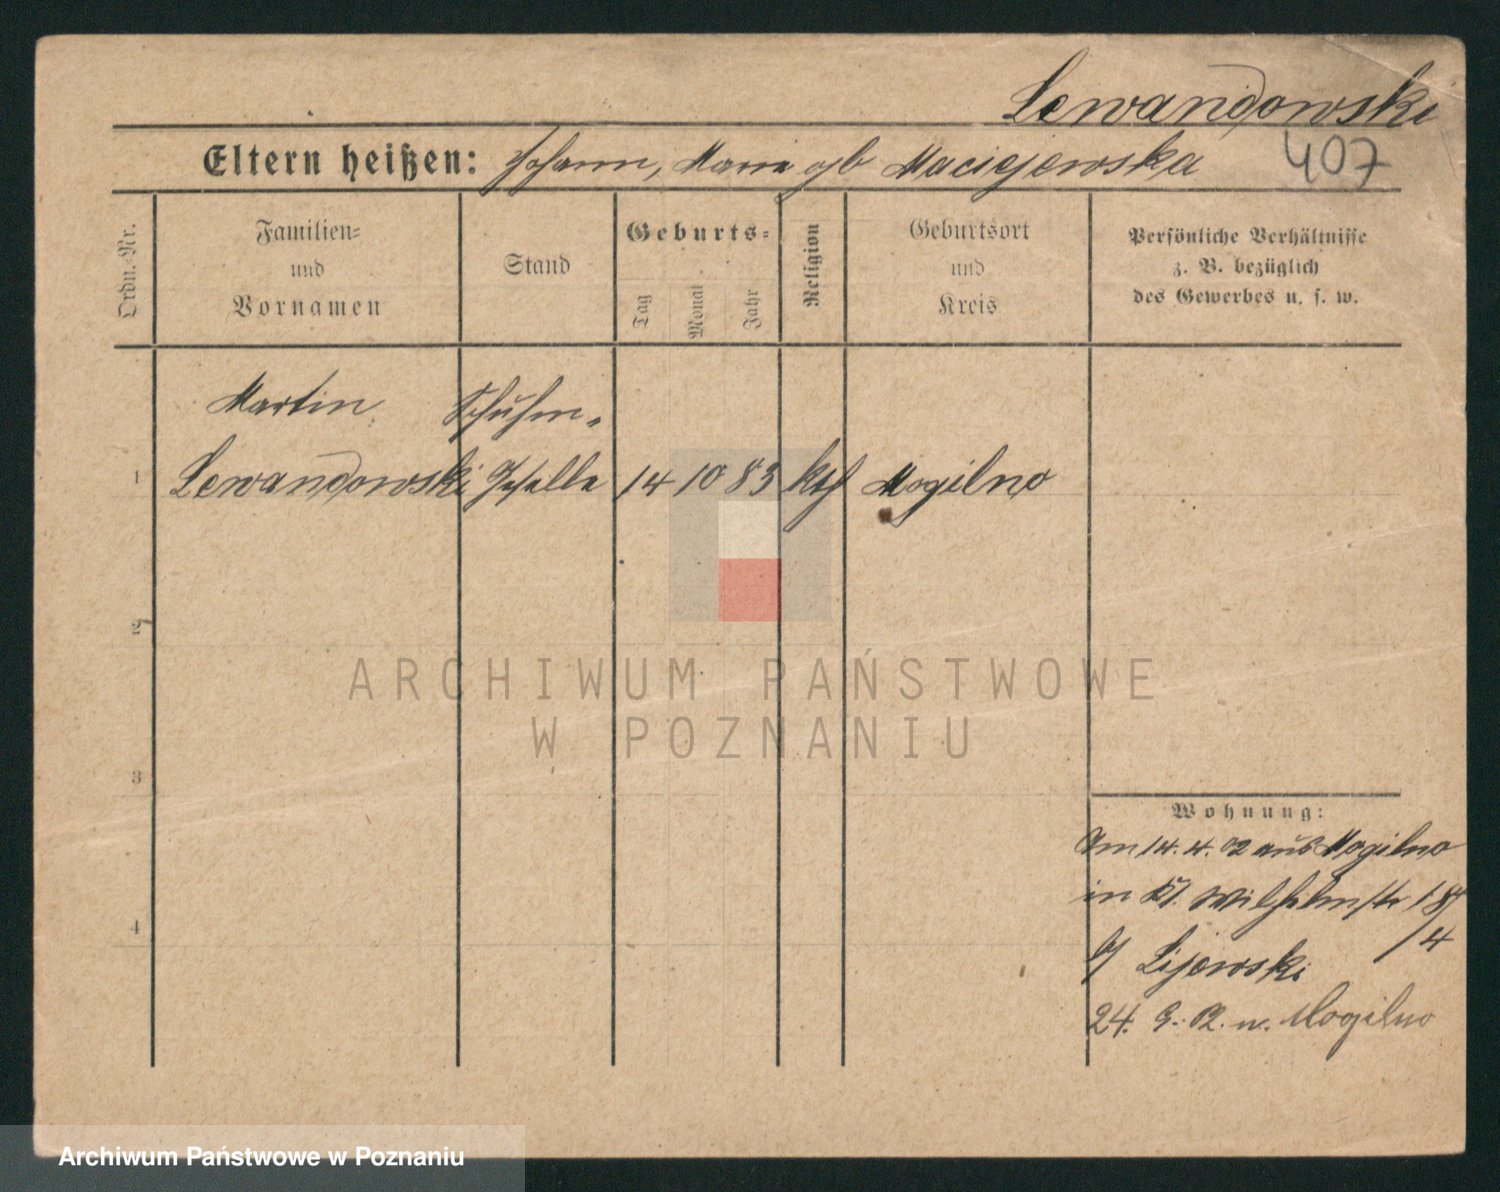 Lewandowski
Eltern heißen: Johann, Maria gb Maciejewska
407
Ordn.-Nr.
Familien-
und
Vornamen
Stand
Geburts-
Tag
Monat
Jahr
Religion
Geburtsort
und
Kreis
Persönliche Verhältnisse
z. B. bezüglich
des Gewerbes u. s. w.
Martin Schuhm-
1 Lewandowski Geselle 14 10 83 kth Mogilno
2
3
4
ARCHIWUM PAŃSTWOWE
W POZNANIU
Wohnung:
Am 14. 4. 02 aus Mogilno
in Kl. Wilhelmstr 18
/4
b/ Lijewski
24. 9. 02. n. Mogilno
Archiwum Państwowe w Poznaniu